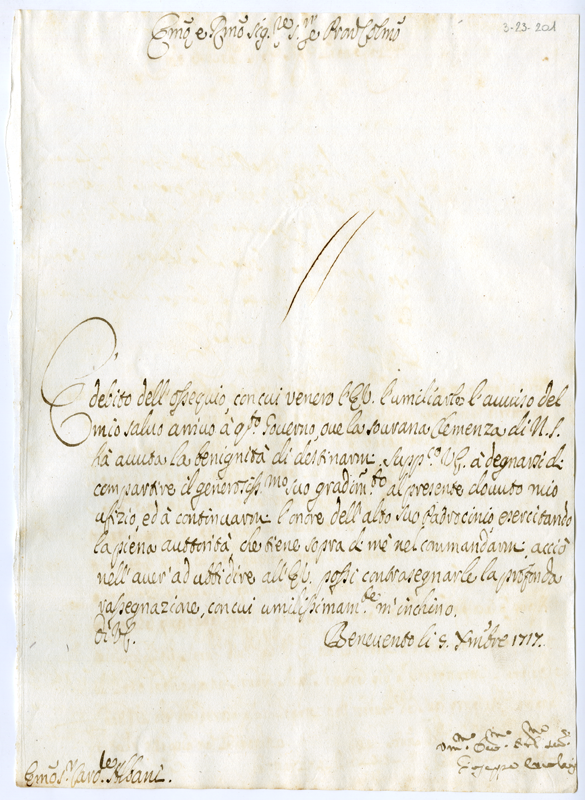 3-23-201
Em̃o e Rm̃o Sig.re S.r e Pron Colm̃o
È debito dell'ossequio, con cui venero l'E.V. l'umiliarle l'auuiso del
mio saluo arriuo à q.sto Gouerno, oue la sourana Clemenza di N.S.
hà auuta la benignità di destinarmi. Supp.co V.E. à degnarsi di
compartire il generosiss.mo suo gradim.to al presente douuto mio
ufizio, ed à continuarmi l'onore dell'alto suo Padrocinio, esercitando
la piena auttorità, che tiene sopra di mè nel commandarmi, acciò
nell'auer' ad ubbidire all'E.V. possi contrasegnarle la profonda
rassegnazione, con cui umilissimam.te m'inchino.
Di V.E. Benevento li 8. Xm̃bre 1717.
Um.mo
Giuseppe
Em̃o S.r Card.le Albani.